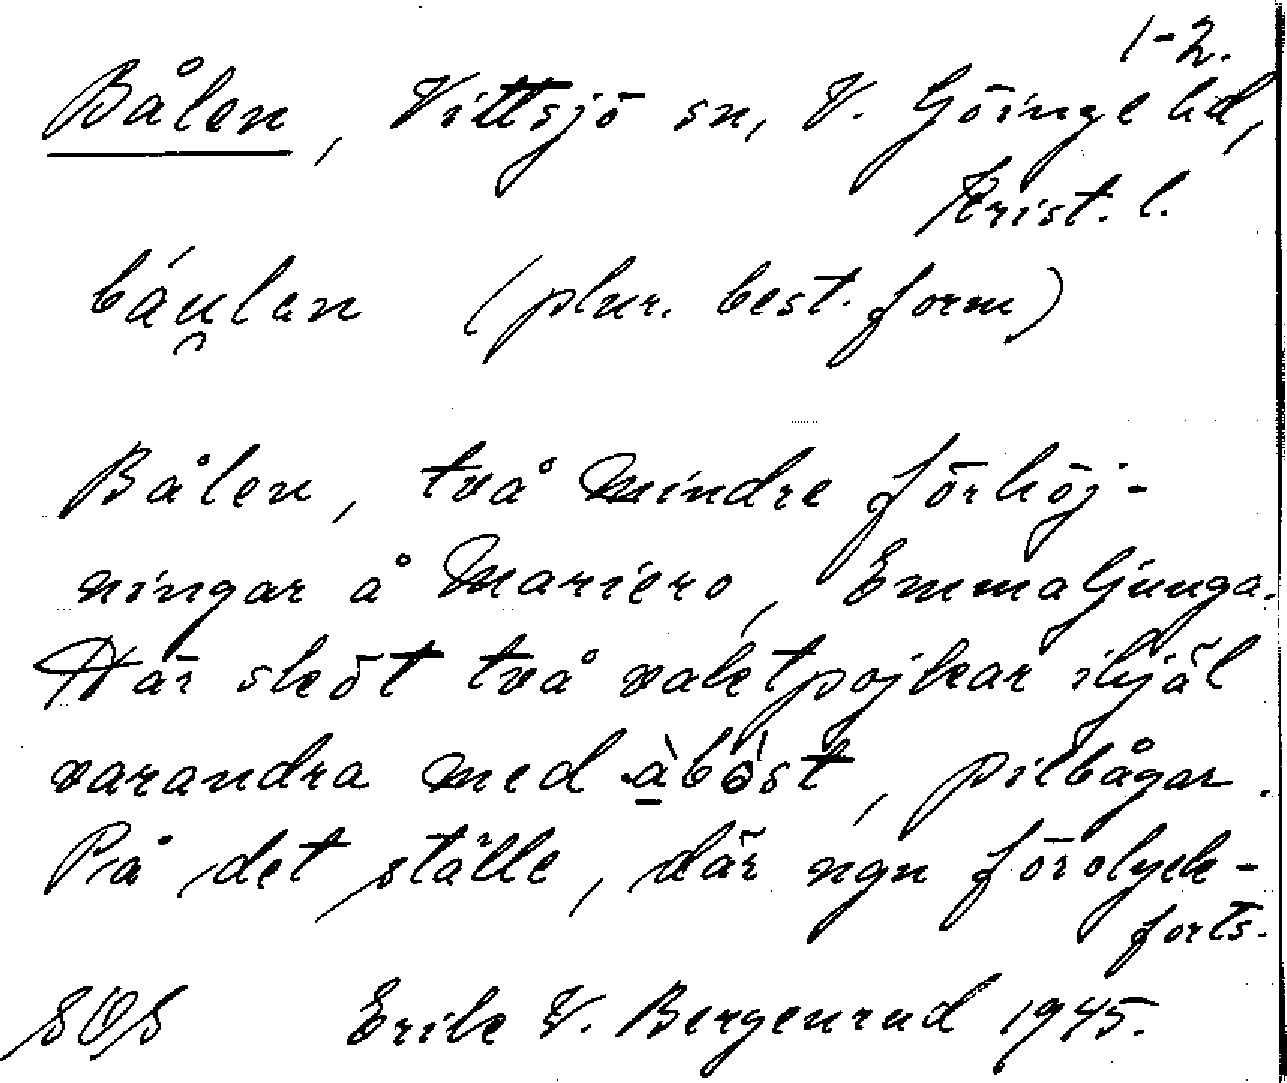 1-2.
Bålen, Vittsjö sn, V. Göinge hd,
Krist. l.
báu̯lan (plur. best. form)
Bålen, två mindre förhöj-
ningar å Mariero, Emmaljunga.
Här sköt två vaktpojkar ihjäl
varandra med àbòst, pilbågar.
På det ställe, där ngn förolyck-
forts.
SOS Erik V. Bergenrud 1945.